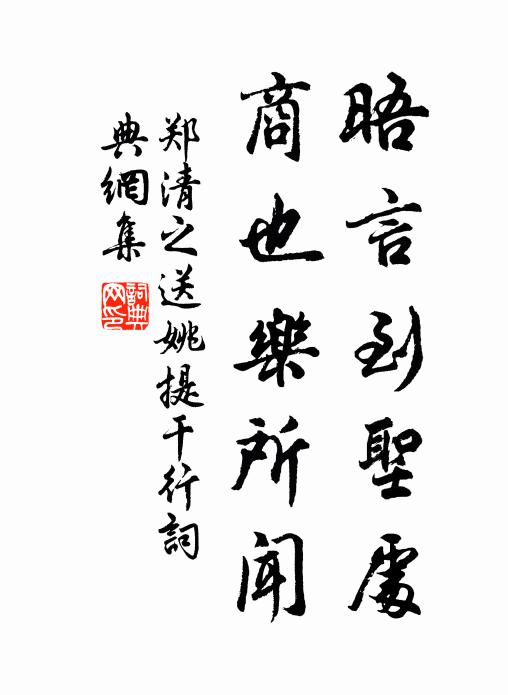 晤言到聖處
商也樂所聞
郑清之送姚提干行詞
典網集
詞典
网印